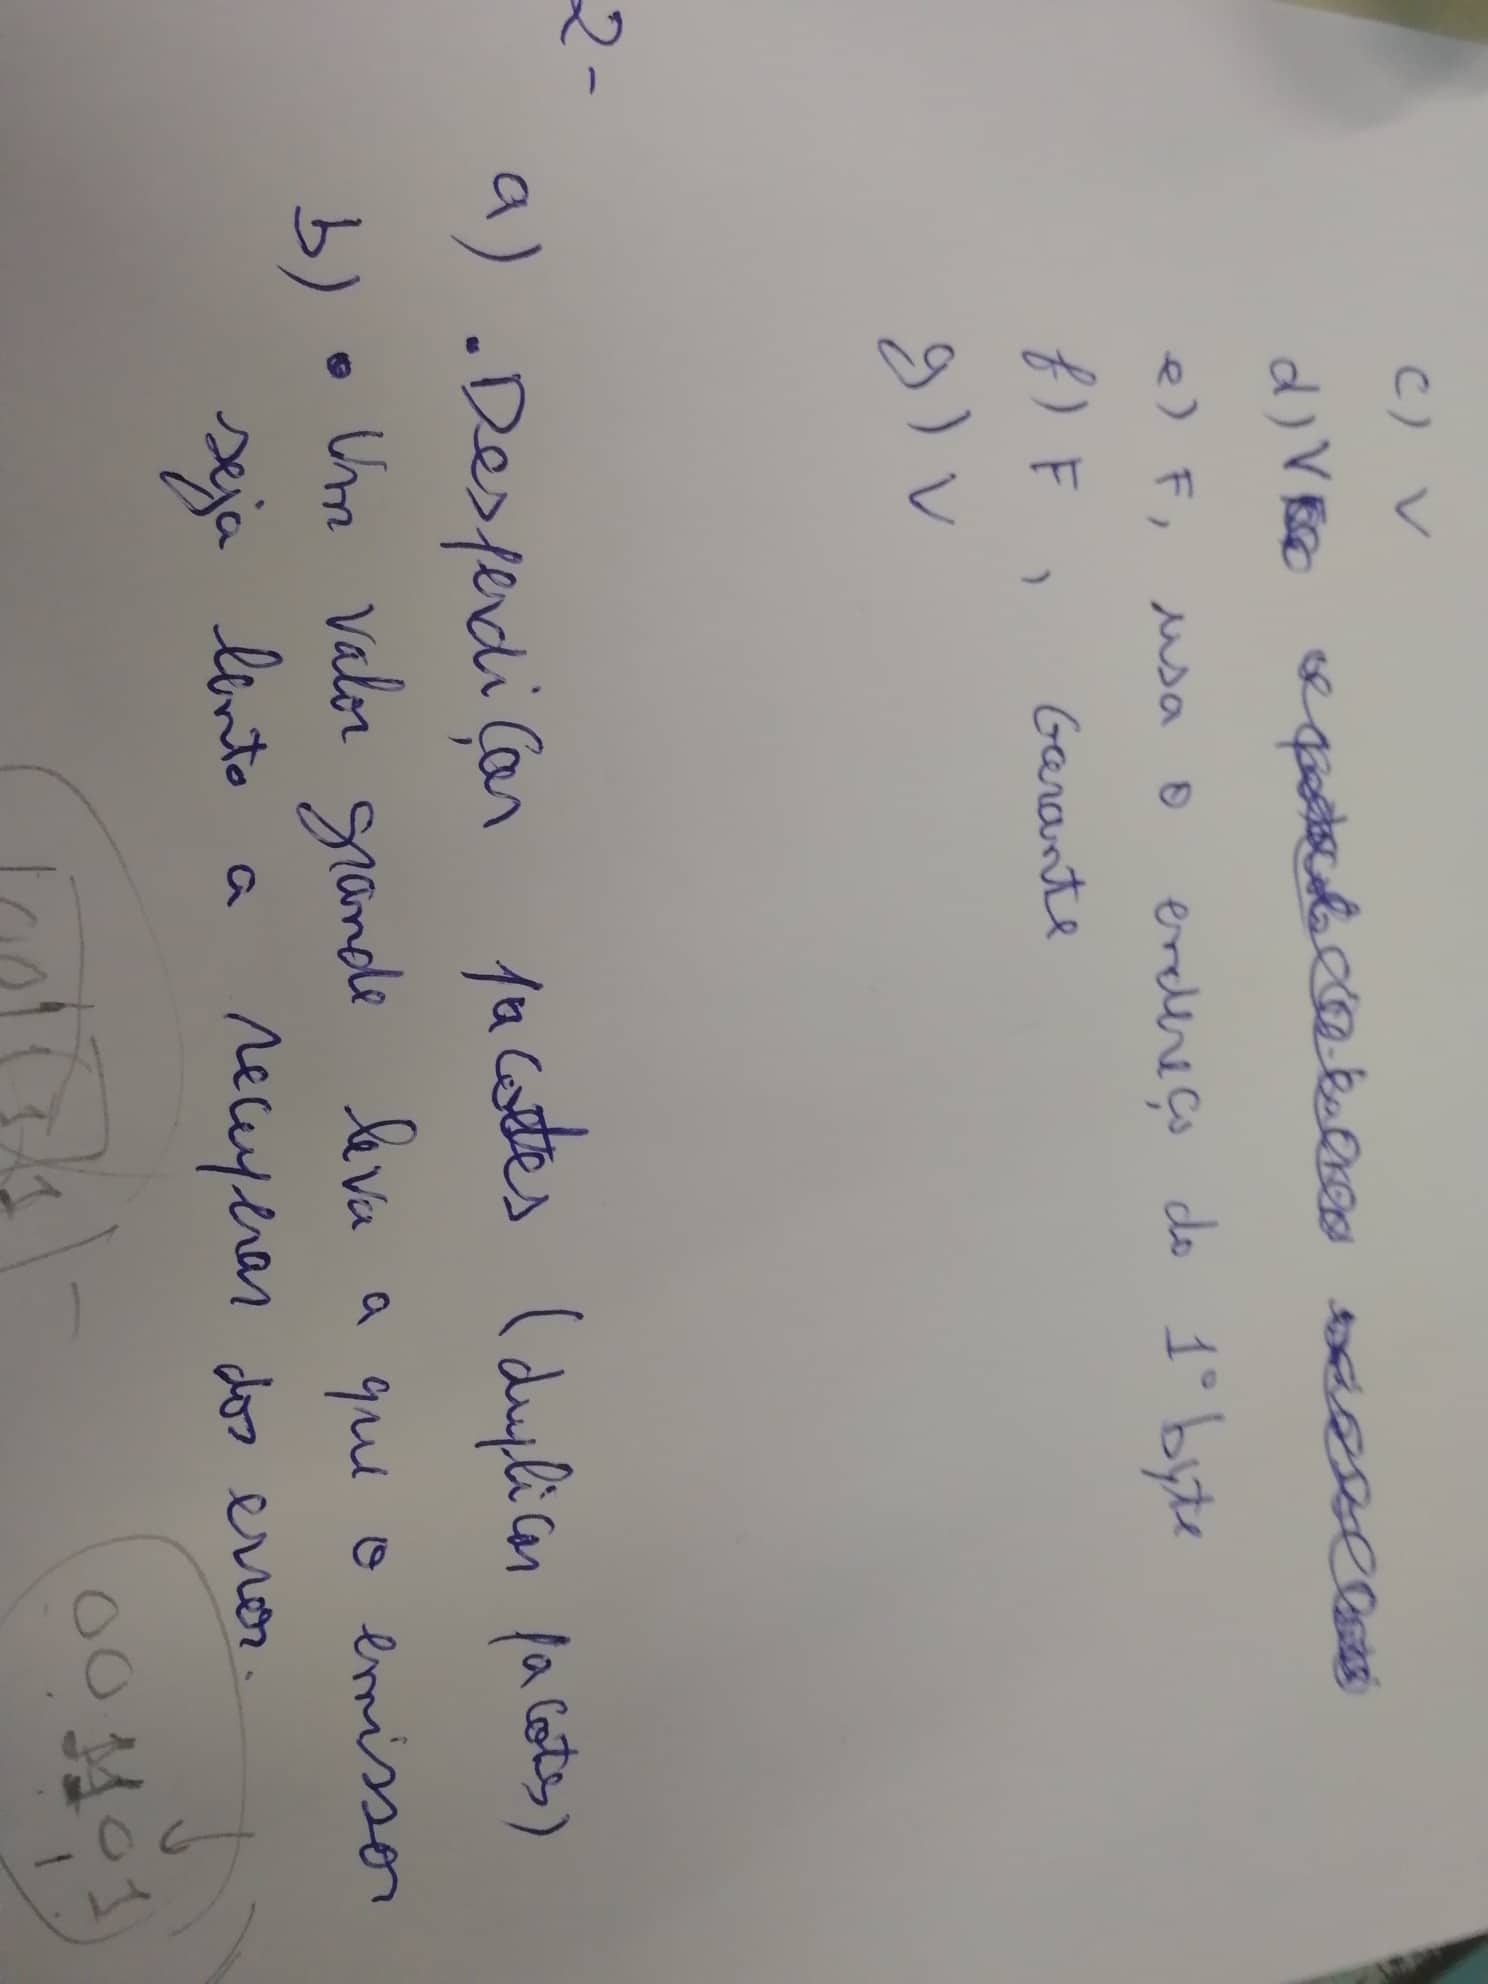 c) V
d) V
e) F, usa o endereço do 1º byte
f) F, Garante
g) V
2-
a) . Desperdiçar pacotes (duplicar pacotes)
b) • Um valor grande leva a que o emissor
seja lento a recuperar dos error.
001101